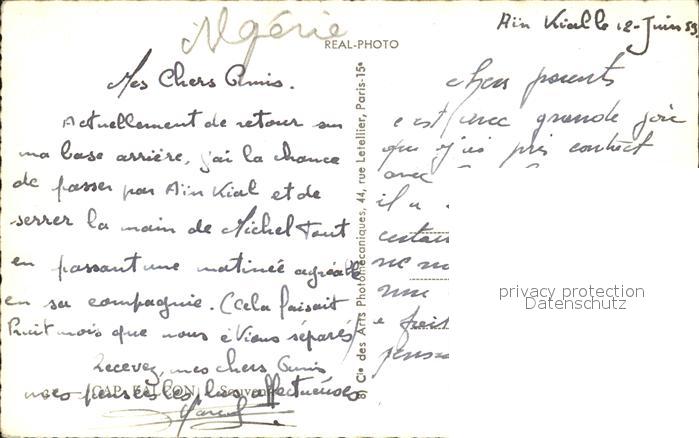 Algérie
REAL-PHOTO
Aïn Kial le 12-Juin 59
Mes Chers Amis.
Actuellement de retour sur
ma base arrière, j'ai la chance
de passer par Aïn Kial et de
serrer la main de Michel tout
en passant une matinée agréable
en sa compagnie. (Cela faisait
huit mois que nous étions séparés)
Recevez, mes chers Amis
mes pensées les plus affectueuses
CAP FALCON
Cie des Arts Photomécaniques, 44, rue Letellier, Paris-15e
chers parents
c'est avec grande joie
que j'ai pris contact
avec
il a
ne
une
privacy protection
Datenschutz